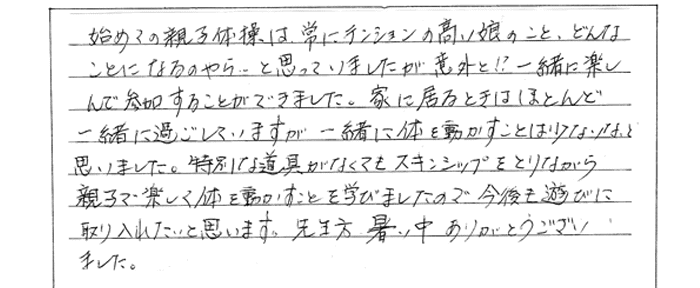 始めての親子体操は常にテンションの高い娘のこと、どんな
ことになるのやら…と思っていましたが意外と!?一緒に楽し
んで参加することができました。家に居るときはほとんど
一緒に過ごしていますが一緒に体を動かすことは少ないなと
思いました。特別な道具がなくてもスキンシップをとりながら
親子で楽しく体を動かすことを学びましたので今後も遊びに
取り入れたいと思います。先生方 暑い中ありがとうござい
ました。